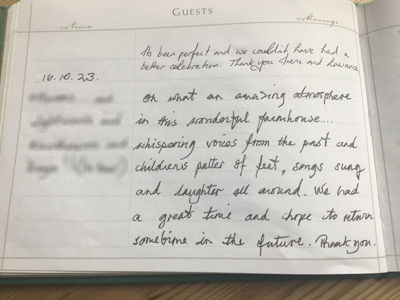 GUESTS
Name
Message
Its been perfect and we couldn't have had a
better celebration. Thank you and
16.10.23.
Oh what an amazing atmosphere
in this wonderful farmhouse....
whispering voices from the past and
children's patter of feet, songs sung
and laughter all around. We had
a great time and hope to return
sometime in the future. Thank you.